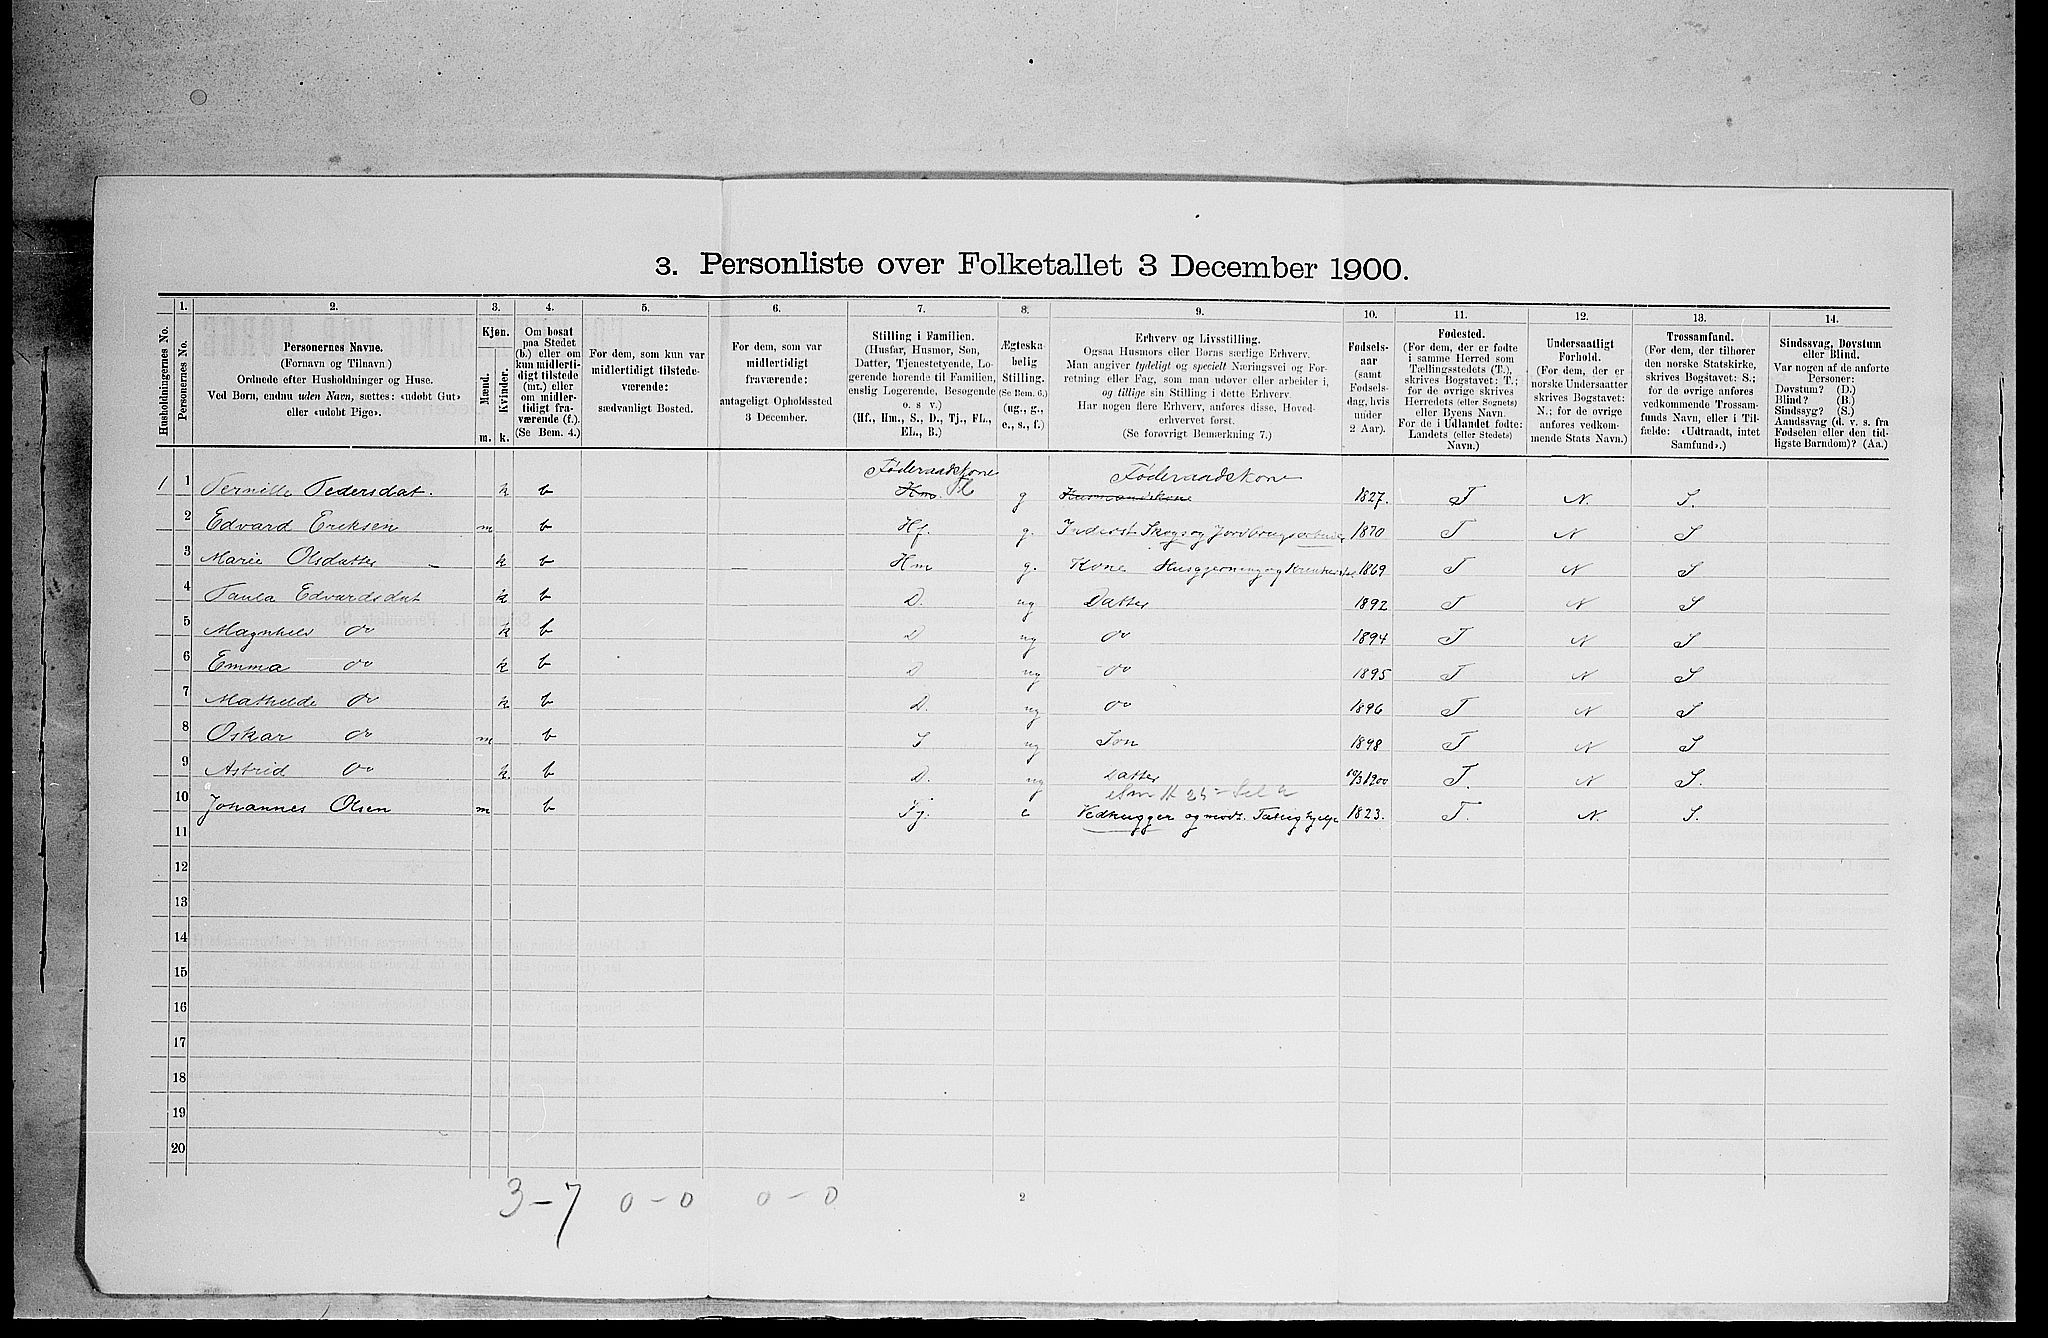 3. Personliste over Folketallet 3 December 1900.
1. 2. 3. 4. 5. 6. 7. 8. 9. 10. 11. 12. 13. 14.
Husholdningernes No.
Personernes No.
Personernes Navne.
(Fornavn og Tilnavn)
Ordnede efter Husholdninger og Huse.
Ved Børn, endnu uden Navn, sættes: «udøbt Gut»
eller «udøbt Pige».
Kjøn.
Mænd.
Kvinder.
m. k.
Om bosat
paa Stedet
(b.) eller om
kun midlerti-
digt tilstede
(mt.) eller
om midler-
tidigt fra-
værende (f.).
(Se Bem. 4.)
For dem, som kun var
midlertidigt tilstede-
værende:
sædvanligt Bosted.
For dem, som var
midlertidigt
fraværende:
antageligt Opholdssted
3 December.
Stilling i Familien.
(Husfar, Husmor, Søn,
Datter, Tjenestetyende, Lo-
gerende hørende til Familien,
enslig Logerende, Besøgende
o. s. v.)
(Hf., Hm., S., D., Tj., FL.,
EL., B.)
Ægteska-
belig
Stilling.
(Se Bem. 6.)
(ug., g.,
e., s., f.)
Erhverv og Livsstilling.
Ogsaa Husmors eller Børns særlige Erhverv.
Man angiver tydeligt og specielt Næringsvei og For-
retning eller Fag, som man udøver eller arbeider i,
og tillige sin Stilling i dette Erhverv.
Har nogen flere Erhverv, anføres disse, Hoved-
erhvervet først.
(Se forøvrigt Bemærkning 7.)
Fødsels-
aar
(samt
Fødsels-
dag, hvis
under
2 Aar).
Fødested.
(For dem, der er fødte
i samme Herred som
Tællingsstedets (T.),
skrives Bogstavet: T.;
for de øvrige skrives
Herredets (eller Sognets)
eller Byens Navn.
For de i Udlandet fødte:
Landets (eller Stedets)
Navn.)
Undersaatligt
Forhold.
(For dem, der er
norske Undersaatter
skrives Bogstavet:
N.; for de øvrige
anføres vedkom-
mende Stats Navn.)
Trossamfund.
(For dem, der tilhører
den norske Statskirke,
skrives Bogstavet: S.;
for de øvrige anføres
vedkommende Trossam-
funds Navn, eller i Til-
fælde: «Udtraadt, intet
Samfund».)
Sindssvag, Døvstum
eller Blind.
Var nogen af de anførte
Personer:
Døvstum? (D.)
Blind? (B.)
Sindssyg? (S.)
Aandssvag (d. v. s. fra
Fødselen eller den tid-
ligste Barndom)? (Aa.)
Føderaadskone Føderaadskone
1 1 Pernille Pedersdat. k b Hm. g Husmandskone 1827. T N. S.
2 Edvard Eriksen m b Hf. g. Inderst Skogs og Jordbrugsarbeider 1870 T N S
3 Marie Olsdatter k b Hm g. Kone Husgjerning og Kreaturstel 1869 T N S
4 Paula Edvardsdat k b D. ug Datter 1892 T N S
5 Magnhild do k b D ug do 1894 T N S
6 Emma do k b D ug do 1895 T N S
7 Mathilde do k b D. ug do 1896 T N S
8 Oskar do m b S ug Søn 1898 T N S
9 Astrid do k. b D. ug Datter 10/3 1900 T. N S.
10 Johannes Olsen m b Tj. e Vedhugger og modt. Fattighjelp 1823. T. N. S.
11
12
13
14
15
16
17
18
19
20
3-7 0-0 0-0
2